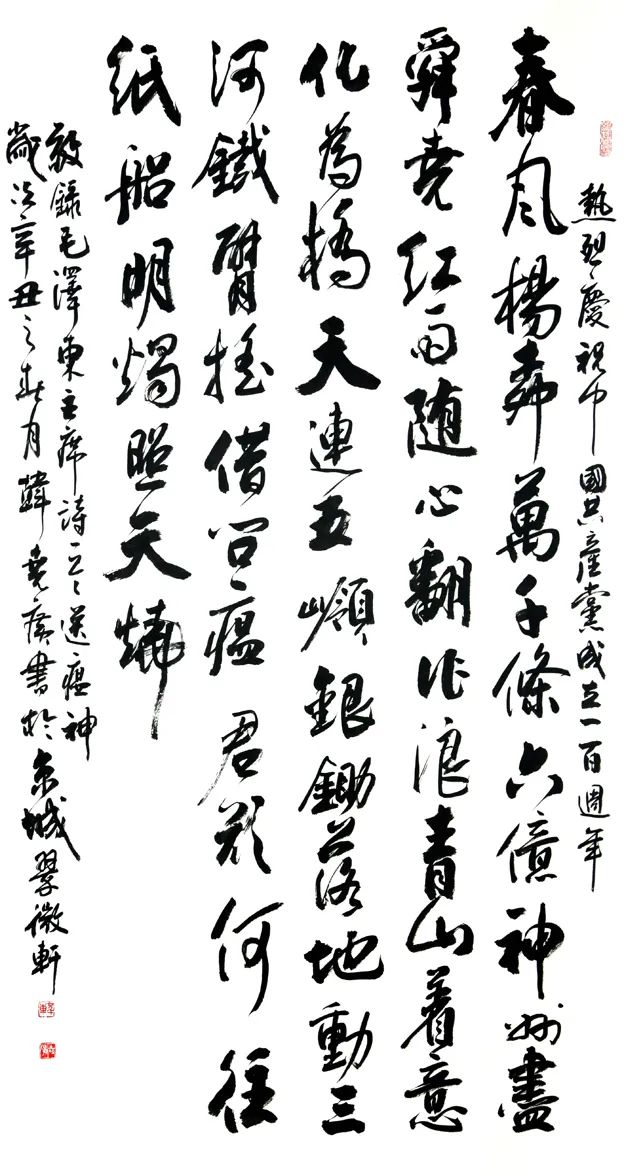 熱烈慶祝中國共產黨成立一百週年
春風楊柳萬千條六億神州盡
舜堯紅雨随心翻作浪青山着意
化為橋天連五嶺銀鋤落地動三
河鐵臂摇借問瘟君欲何往
紙船明燭照天燒
敬録毛澤東主席詩送瘟神
歲次辛丑之春月韓堯廣書於京城翠微軒